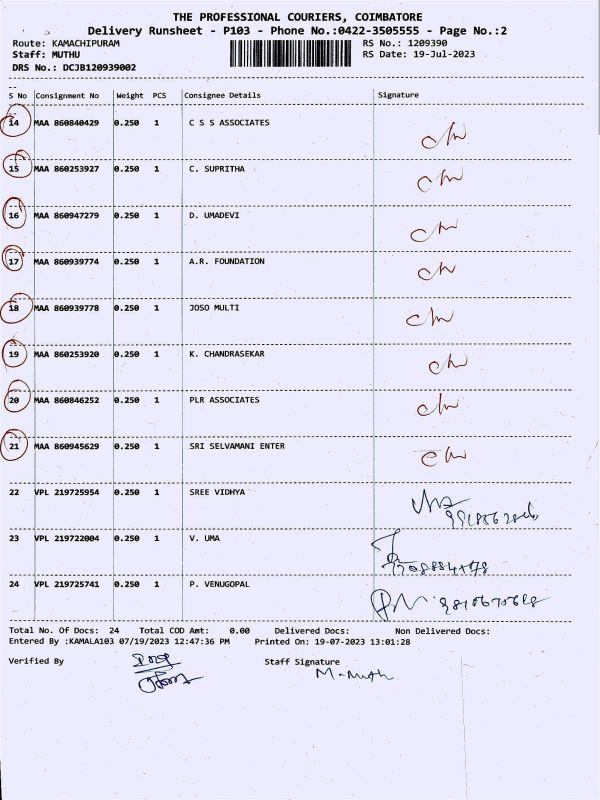 THE PROFESSIONAL COURIERS, COIMBATORE
Delivery Runsheet - P103 - Phone No.:0422-3505555 - Page No.:2
Route: KAMACHIPURAM RS No.: 1209390
Staff: MUTHU RS Date: 19-Jul-2023
DRS No.: DCJB120939002
S No Consignment No Weight PCS Consignee Details Signature
14 MAA 860840429 0.250 1 C S S ASSOCIATES
15 MAA 860253927 0.250 1 C. SUPRITHA
16 MAA 860947279 0.250 1 D. UMADEVI
17 MAA 860939774 0.250 1 A.R. FOUNDATION
18 MAA 860939778 0.250 1 JOSO MULTI
19 MAA 860253920 0.250 1 K. CHANDRASEKAR
20 MAA 860846252 0.250 1 PLR ASSOCIATES
21 MAA 860945629 0.250 1 SRI SELVAMANI ENTER
22 VPL 219725954 0.250 1 SREE VIDHYA
23 VPL 219722004 0.250 1 V. UMA
24 VPL 219725741 0.250 1 P. VENUGOPAL
Total No. Of Docs: 24 Total COD Amt: 0.00 Delivered Docs: Non Delivered Docs:
Entered By :KAMALA103 07/19/2023 12:47:36 PM Printed On: 19-07-2023 13:01:28
Verified By Staff Signature
M-Muth